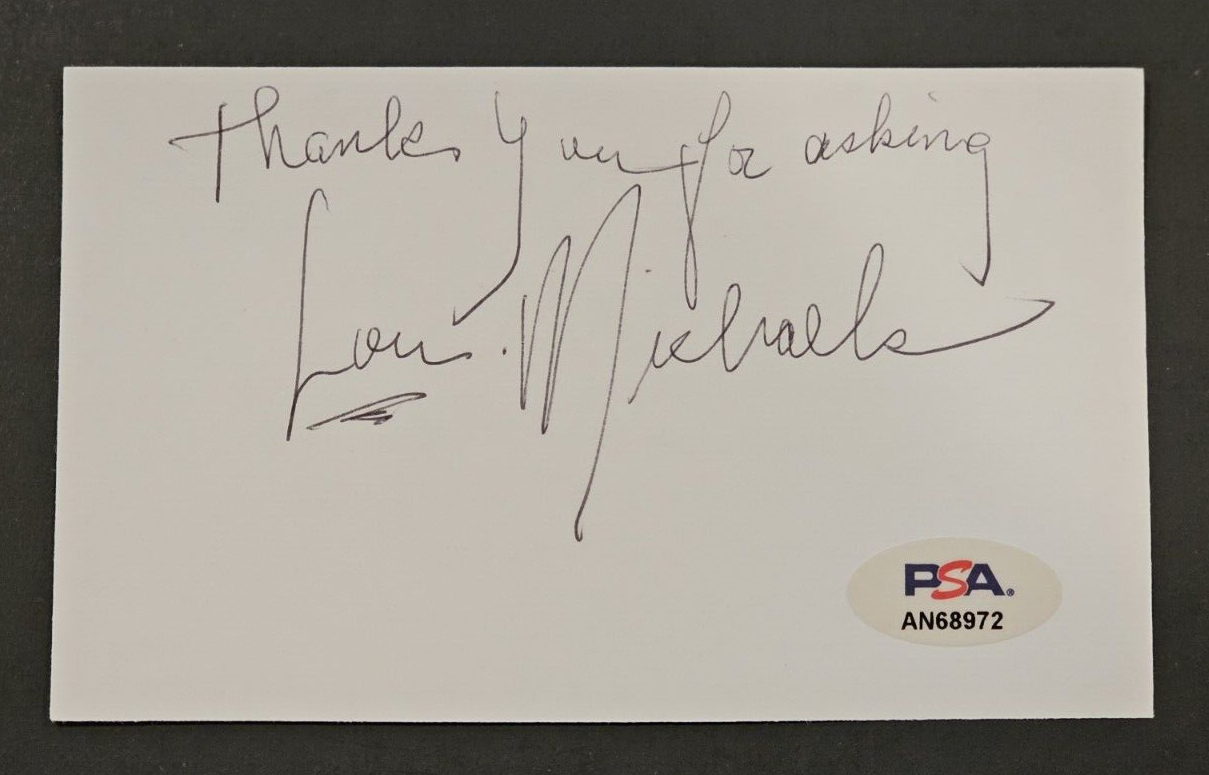 Thank you for asking
Lou Michaels
PSA®
AN68972